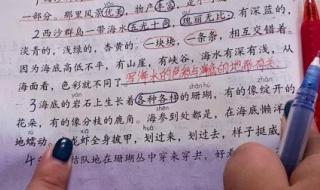 一部分。那里风景优美,物产丰富,是
2 西沙群岛一带海水五光十色,瑰丽无比:有深蓝的,
淡青的,浅绿的,杏黄的。一块块,一条条,相互交错着。
因为海底高低不平,有山崖,有峡谷,海水有深有浅,从
海面看,色彩就不同了。写海水的色彩与海底的地形有关
shān hú zhàn
3 海底的岩石上生长着各种各样的珊瑚,有的像绽开的
花朵,有的像分枝的鹿角。海参到处都是,在海底懒洋
地蠕动。 虾全身披甲,划过来,划过去,样子挺威
4 成群结队地在珊瑚丛中穿来穿去,好